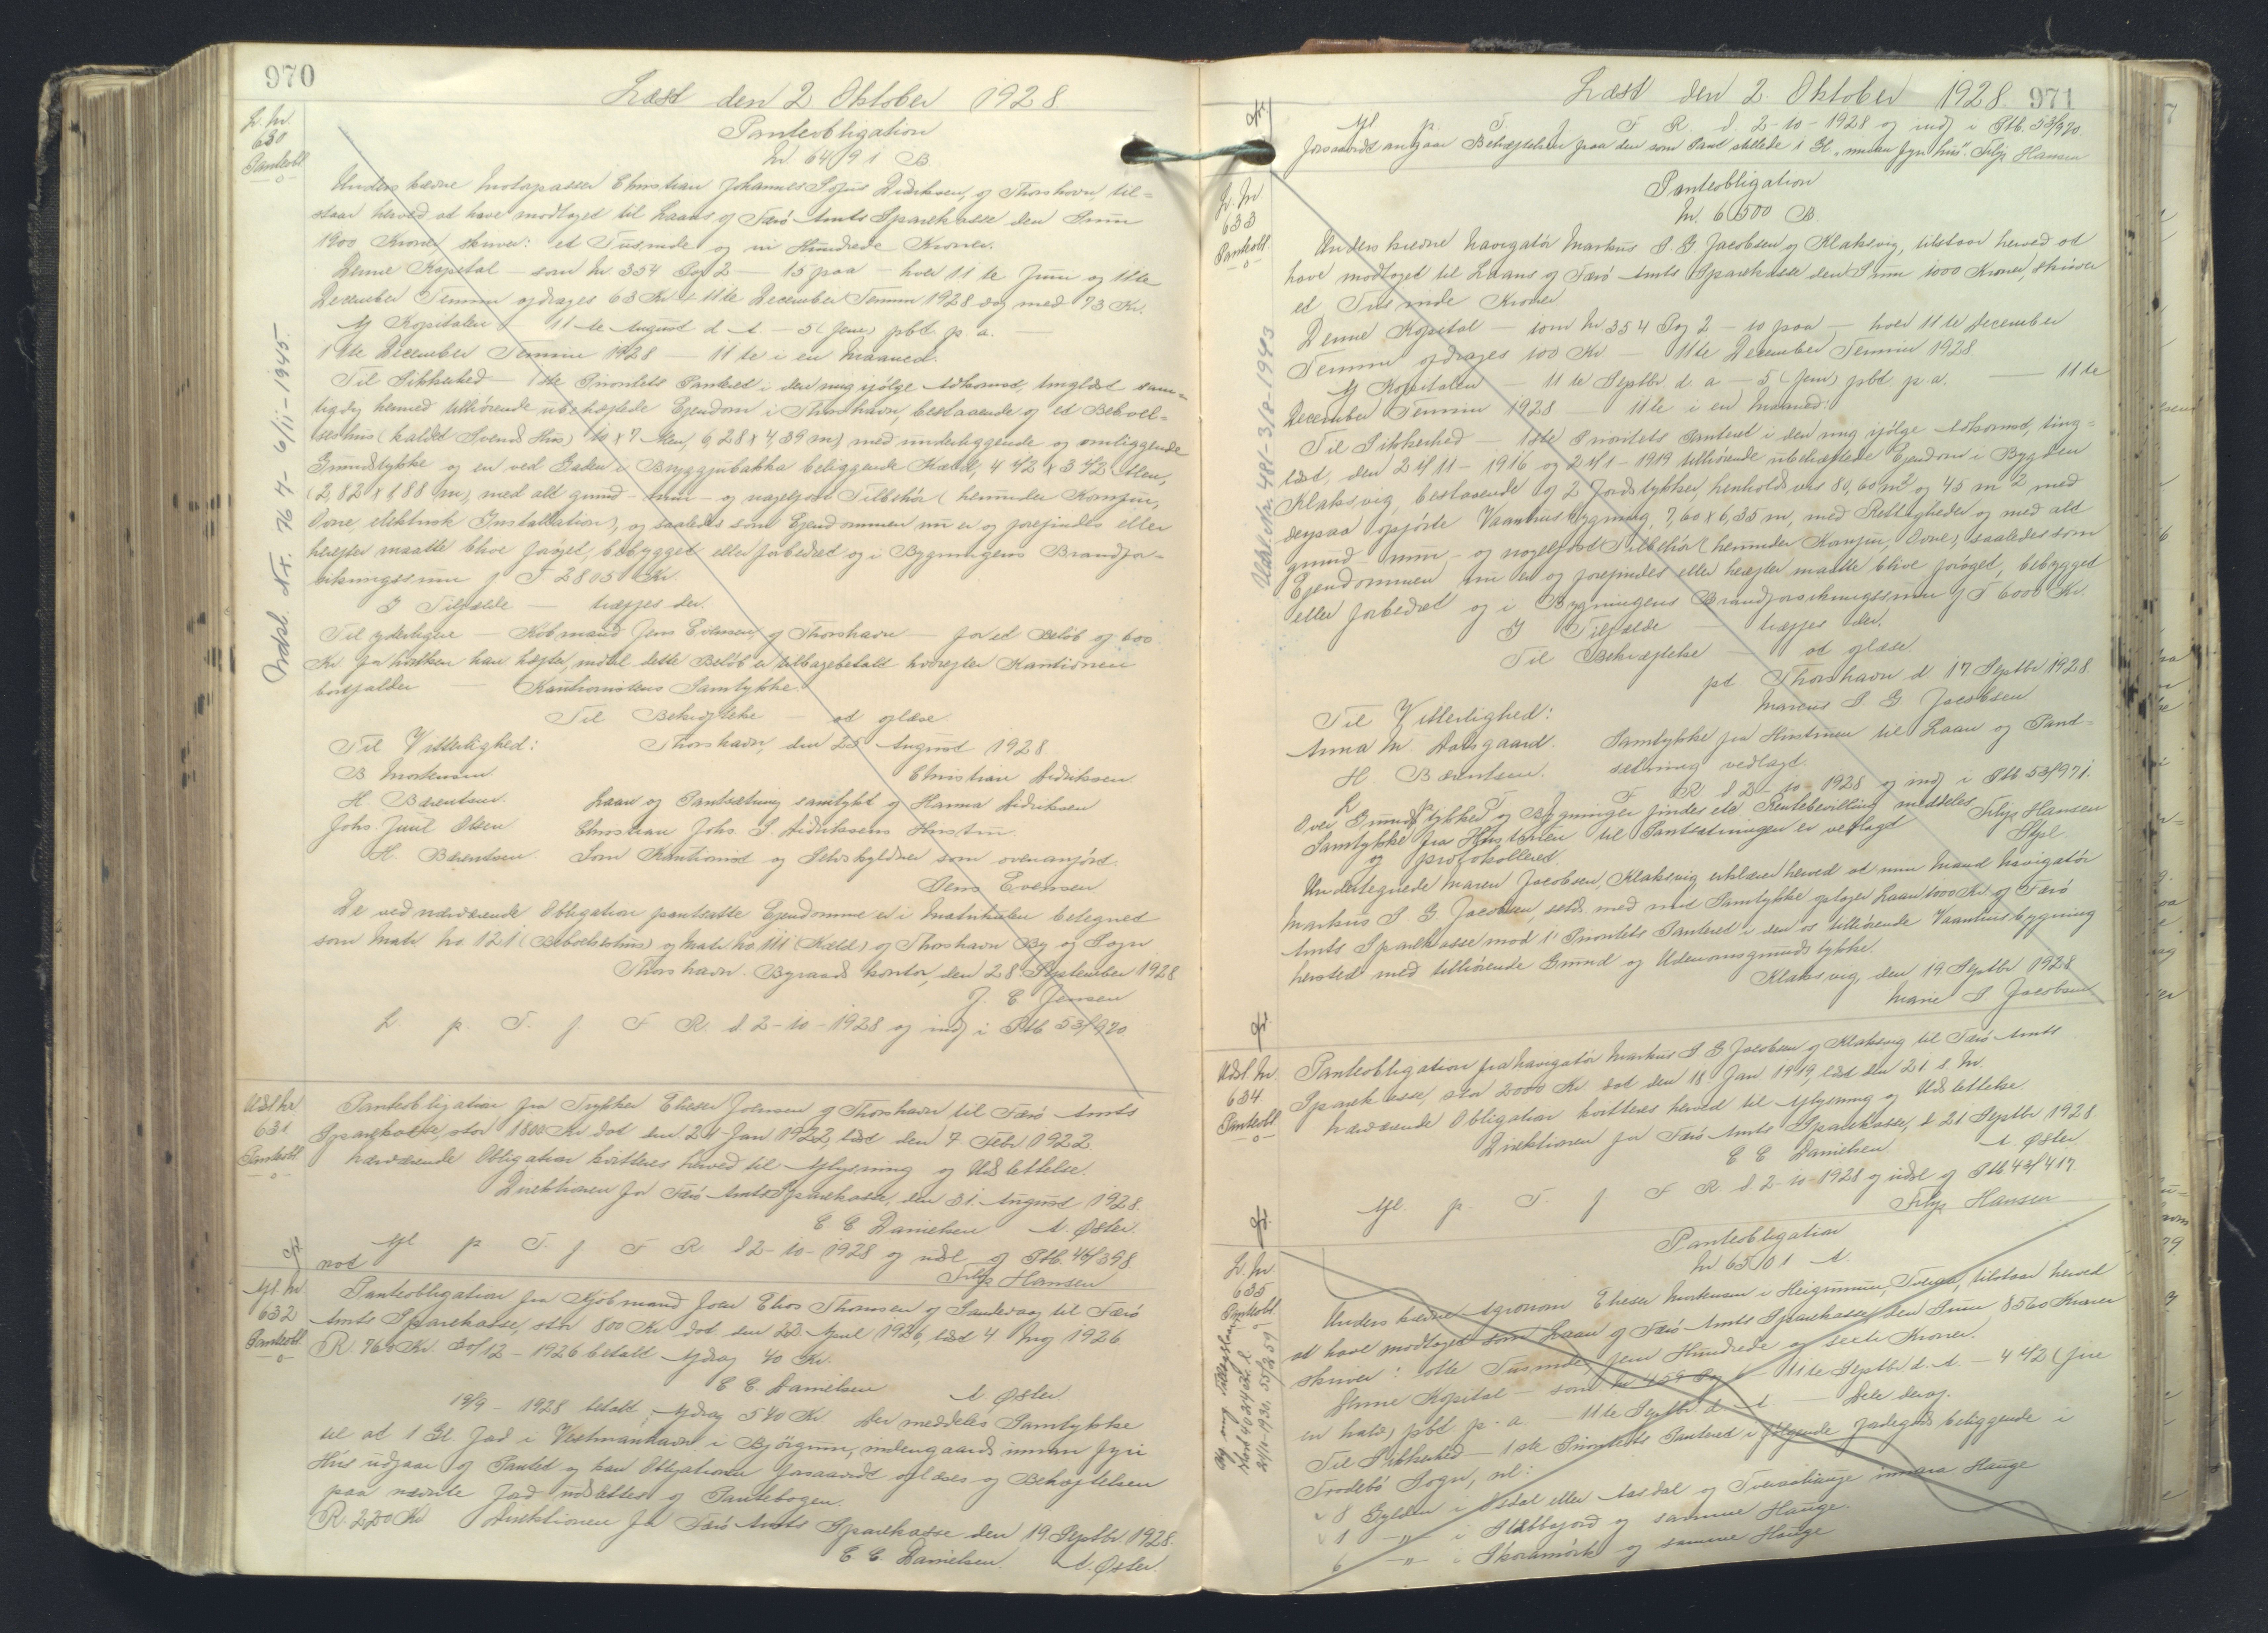 970
Læst den 2 Oktober 1928
L. Nr.
630
Panteobl.
Panteobligation
Nr 6491 B
Underskrevne Motorpasser Christian Johannes Sofus Didriksen, af Thorshavn, til-
staar herved at have modtaget til Laans af Færø Amts Sparekasse den Sum
1900 Kroner skriver: et Tusinde og ni Hundrede Kroner.
Denne Kapital – som Nr 354 Pag 2 – 15 paa – hver 11te Juni og 11te
December Termin afdrages 63 Kr i 11te December Termin 1928 dog med 73 Kr.
Af Kapitalen – 11te August d. A. – 5 (fem) pCt. p. a. –
11te December Termin 1928 – 11te i en Maaned.
Til Sikkerhed – 1ste Prioritets Panteret i den mig ifølge Adkomst, tinglæst sam-
tidig hermed tilhørende ubehæftede Ejendom i Thorshavn, bestaaende af et Beboel-
seshus (kaldet Svends Hus) 10 x 7 Alen, 6,28 x 4,39 m) med underliggende og omliggende
Grundstykke og en ved Gaden i Bryggjubakka beliggende Kæld, 4 1/2 x 3 1/2 Alen,
(2,82 x 1,88 m), med alt grund- mur- og nagelfast Tilbehør (herunder Komfur,
Ovne, elektrisk Installation), og saaledes som Ejendommen nu er og forefindes eller
herefter maatte blive forøget, bebygget eller forbedret og i Bygningens Brandfor-
sikringssum f T 2805 Kr.
I Tilfælde – træffes der.
Til yderligere – Købmand Jens Evensen, af Thorshavn – for et Beløb af 600
Kr for hvilken han hæfter, indtil dette Beløb er tilbagebetalt hvorefter Kautionen
bortfalder – Kautionistens Samtykke.
Til Bekræftelse – at oplæse.
Til Vitterlighed: Thorshavn, den 25 August 1928.
B Mortensen. Christian Didriksen.
H Bærentsen. Laan og Pantsætning samtykt af Hanna Didriksen
Johs Juul Olsen Christian Johs. S. Didriksens Hustru.
H. Bærentsen Som Kautionist og Selvskyldner som ovenanført.
Jens Evensen
De ved nærværende Obligation pantsatte Ejendomme er i Matrikulen betegnet
som Matr No 121 (Beboelseshus) og Matr No 111 (Kæld) af Thorshavn By og Sogn
Thorshavn Byraads Kontor, den 28 September 1928
J. E Jensen
L. p. T. f F R. d. 2-10-1928 og indf i Ptb 53/970
Indsl. Nr. 764 – 6/11-1945
Udsl Nr.
631
Panteobl.
Panteobligation fra Trykker Elieser Joensen af Thorshavn til Færø Amts
Sparekasse, stor 1800 Kr dat den 21 Jan 1922 læst den 7 Febr 1922
Nærværende Obligation kvitteres herved til Aflysning og Udslettelse.
Direktionen for Færø Amts Sparekasse, den 31. August 1928.
E E Danielsen A. Øster.
Afl p T. f F R. d 2-10-1928 og udsl af Ptb. 46/398
not Filip Hansen
Afl. Nr
632
Panteobl.
Panteobligation fra Kjøbmand Joen Elias Thomsen af Sandevaag til Færø
Amts Sparekasse, stor 800 Kr dat. den 22. April 1926, læst 4 Maj 1926
R. 760 Kr. 30/12 – 1926 betalt Afdrag 40 Kr.
E E. Danielsen A Øster
19/9 – 1928 betalt, Afdrag 540 Kr. Der meddeles Samtykke
til at 1 Gl. Jord i Vestmanhavn i Björgum, indengaards innan fyri
Hús udgaar af Pantet og kan Obligationen forsaavidt aflæses og Behæftelsen
paa nævnte Jord udslettes af Pantebogen.
R. 220 Kr Direktionen for Færø Amts Sparekasse den 19 Septbr. 1928.
E E. Danielsen. A. Øster.
Læst den 2. Oktober 1928 971
Afl p. T. f F R. d. 2-10-1928 og indf i Ptb. 53/970.
forsaavidt angaar Behæftelsen paa den som Pant stillede 1 Gl. „innan fyri hús“. Filip Hansen
L. Nr
633
Panteobl.
Panteobligation
Nr. 6500 B.
Underskrevne Navigatör Markus S. G Jacobsen af Klaksvig, tilstaar herved at
have modtaget til Laans af Færø Amts Sparekasse den Sum 1000 Kroner, skriver
et Tusinde Kroner
Denne Kapital – som Nr 354 Pag 2 – 10 paa – hver 11te December
Termin afdrages 100 Kr – 11te December Termin 1928
Af Kapitalen – 11te Septbr d. a – 5 (fem) pCt p. a. – 11te
December Termin 1928 – 11te i en Maaned.
Til Sikkerhed – 1ste Prioritets Panteret i den mig ifølge Adkomst, ting-
læst, den 21/11 – 1916 og 21/1 – 1919 tilhørende ubehæftede Ejendom i Bygden
Klaksvig, bestaaende af 2 Jordstykker, henholdsvis 80,60 m2 og 45 m2 med
derpaa opførte Vaaningsbygning, 7,60 x 6,35 m, med Rettigheder og med alt
grund- mur- og nagelfast Tilbehør (herunder Komfur, Ovne), saaledes som
Ejendommen nu er og forefindes eller herefter maatte blive forøget, bebygget
eller forbedret og i Bygningens Brandforsikringssum f T 6000 Kr.
I Tilfælde – træffes der.
Til Bekræftelse – at oplæse
pt. Thorshavn d 17 Septbr 1928.
Til Vitterlighed: Marcus S G Jacobsen
Anna M. Dalsgaard. Samtykke fra Hustruen til Laan og Pant-
H. Bærentsen. sætning vedlagt.
L p T f F R. d. 2-10-1928 og indf i Ptb 53/971.
Over Grundstykket og Bygninger findes etc Rentebevilling meddeles
Samtykke fra Hustruen til Pantsætningen er vedlagt Filip Hansen
og protokolleret. Stpl
Undertegnede Maren Jacobsen, Klaksvig erklærer herved at min Mand Navigatör
Markus S. G Jacobsen, sstds med mit Samtykke optager Laan 1000 Kr af Færø
Amts Sparekasse mod 1 Prioritets Panteret i den os tilhørende Vaaningsbygning
hersteds med tilhørende Grund og Udenomsgrundstykke.
Klaksvig, den 19 Septbr 1928
Marie S Jacobsen
Udsl Nr. 481 – 3/8-1943
Udsl. Nr.
634.
Panteobl.
Panteobligation fra Navigatör Markus S G Jacobsen af Klaksvig til Færø Amts
Sparekasse, stor 2000 Kr dat den 18. Jan 1919, læst den 21 s. M.
Nærværende Obligation kvitteres herved til Aflysning og Udslettelse.
Direktionen for Færø Amts Sparekasse, d. 21 Septbr 1928.
E E Danielsen A. Øster
Afl. p. T. f F R d. 2-10-1928 og udsl af Ptb 43/417.
Filip Hansen
L. Nr
635
Panteobl.
Panteobligation
Nr 6501 A.
Underskrevne Agronom Elieser Mortensen i Heigunum, Tveraa, tilstaar herved
at have modtaget som Laan af Færø Amts Sparekasse den Sum 8560 Kroner
skriver: otte Tusinde, fem Hundrede og seksti Kroner.
Denne Kapital – som Nr 459 Pag 1 – 11te Septbr d. A – 4 1/2 (fire
en halv) pCt p. a. – 11te Septbr. d. A – Dele deraf.
Til Sikkerhed – 1ste Prioritets Panteret i følgende Jordegods beliggende i
Frodebö Sogn, nl:
8 Gylden i Ásdal eller Aasdal og Tveraahauge innara Hauge
1 –„– i Slættafjord og samme Hauge.
6 –„– i Skoramörk og samme Hauge